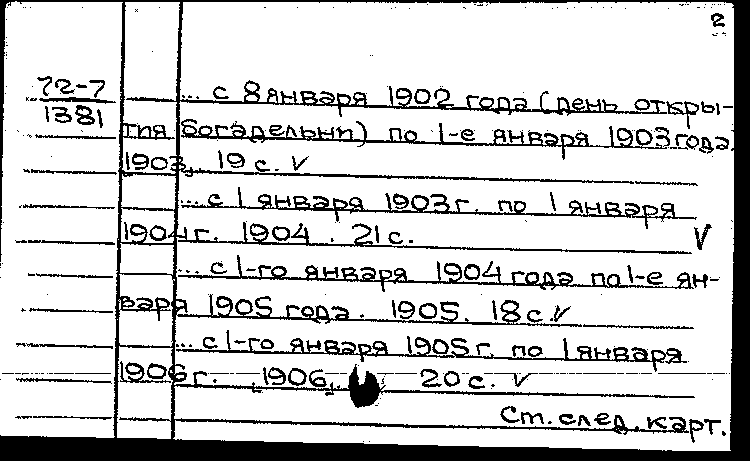 2
72-7
1381
... с 8 января 1902 года (день откры-
тия богадельни) по 1-е января 1903 года.
1903, 19 с. V
... с 1 января 1903 г. по 1 января
1904 г. 1904. 21 с. V
... с 1-го января 1904 года по 1-е ян-
варя 1905 года. 1905. 18 с. V
... с 1-го января 1905 г. по 1 января
1906 г. [1906]. 20 с. V
См. след. карт.